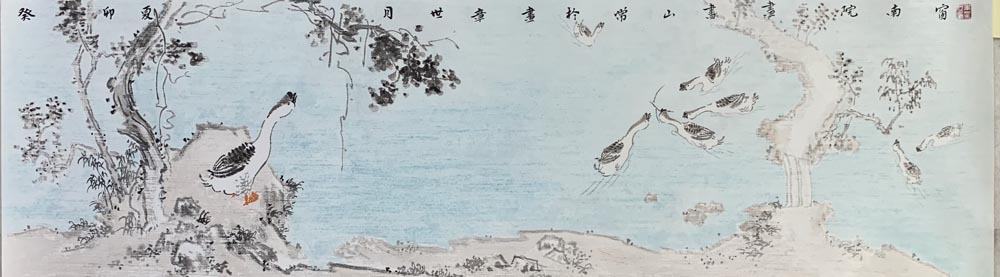 癸卯夏月世章畫於常山書畫院南窗